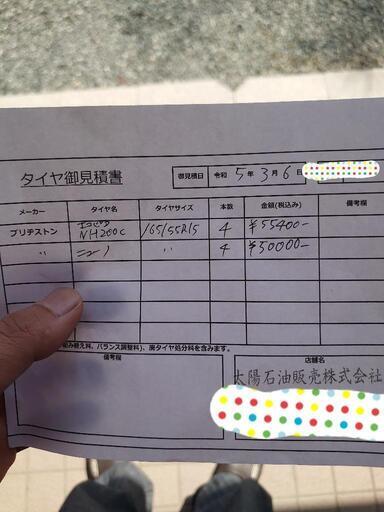 タイヤ御見積書
御見積日 令和 5 年 3 月 6 日
メーカー タイヤ名 タイヤサイズ 本数 金額(税込み) 備考欄
ブリヂストン エコピア NH200C 165/55R15 4 ¥55400-
〃 ニューノ 〃 4 ¥50000-
組み替え料、バランス調整料)、廃タイヤ処分料を含みます。
備考欄 店舗名
太陽石油販売株式会社